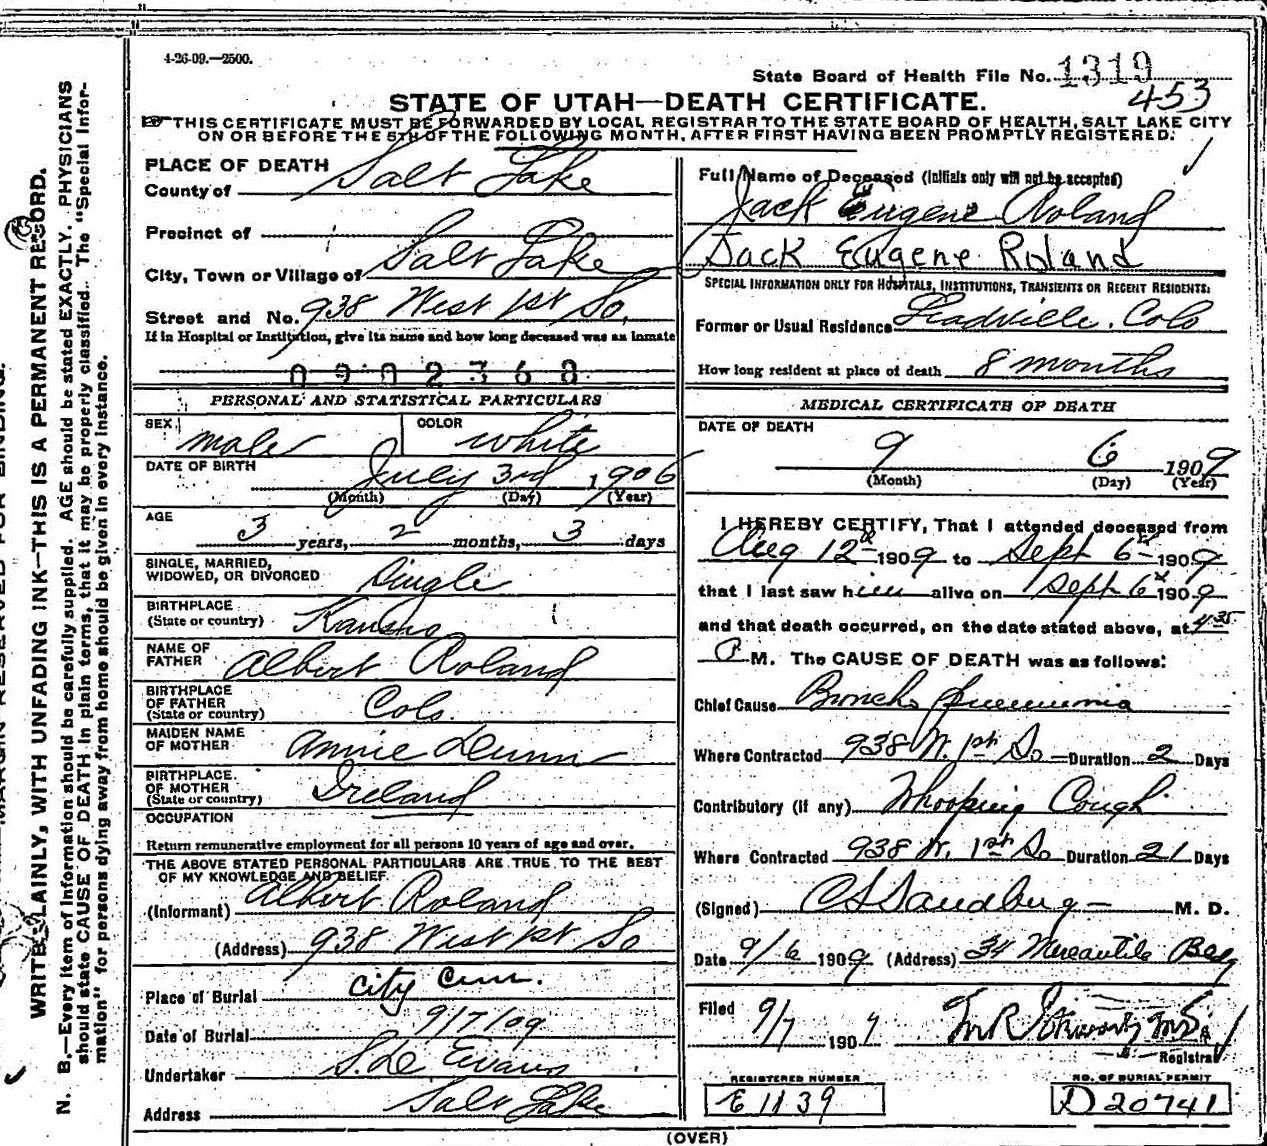 4-26-09.—2500.
State Board of Health File No. 1319
453
STATE OF UTAH—DEATH CERTIFICATE.
THIS CERTIFICATE MUST BE FORWARDED BY LOCAL REGISTRAR TO THE STATE BOARD OF HEALTH, SALT LAKE CITY
ON OR BEFORE THE 5TH OF THE FOLLOWING MONTH, AFTER FIRST HAVING BEEN PROMPTLY REGISTERED.
PLACE OF DEATH
County of Salt Lake
Precinct of
City, Town or Village of Salt Lake
Street and No. 938 West 1st So.
If in Hospital or Institution, give its name and how long deceased was an inmate
0902368
PERSONAL AND STATISTICAL PARTICULARS
SEX male COLOR white
DATE OF BIRTH July 3rd 1906
(Month) (Day) (Year)
AGE 3 years, 2 months, 3 days
SINGLE, MARRIED,
WIDOWED, OR DIVORCED Single
BIRTHPLACE
(State or country) Kansas
NAME OF
FATHER Albert Roland
BIRTHPLACE
OF FATHER
(State or country) Colo.
MAIDEN NAME
OF MOTHER Annie Dunn
BIRTHPLACE
OF MOTHER
(State or country) Ireland
OCCUPATION
Return remunerative employment for all persons 10 years of age and over.
THE ABOVE STATED PERSONAL PARTICULARS ARE TRUE TO THE BEST
OF MY KNOWLEDGE AND BELIEF.
(Informant) Albert Roland
(Address) 938 West 1st So
Place of Burial city Cem.
Date of Burial 9/7/09
Undertaker S.D. Evans
Address Salt Lake
Full Name of Deceased (Initials only will not be accepted)
Jack Eugene Roland
Jack Eugene Roland
SPECIAL INFORMATION ONLY FOR HOSPITALS, INSTITUTIONS, TRANSIENTS OR RECENT RESIDENTS:
Former or Usual Residence Leadville. Colo
How long resident at place of death 8 months
MEDICAL CERTIFICATE OF DEATH
DATE OF DEATH
9 6 1909
(Month) (Day) (Year)
I HEREBY CERTIFY, That I attended deceased from
Aug 12th 1909 to Sept 6th 1909
that I last saw him alive on Sept 6th 1909
and that death occurred, on the date stated above, at 4:35
P M. The CAUSE OF DEATH was as follows:
Chief Cause Broncho pneumonia
Where Contracted 938 W. 1st So Duration 2 Days
Contributory (if any) Whooping Cough
Where Contracted 938 W. 1st So Duration 21 Days
(Signed) Sandberg M. D.
Date 9/6 1909 (Address) 34 Mercantile Bldg
Filed 9/7 1909
Registrar
REGISTERED NUMBER
E 1139
NO. OF BURIAL PERMIT
D 20741
(OVER)
MARGIN RESERVED FOR BINDING.
WRITE PLAINLY, WITH UNFADING INK—THIS IS A PERMANENT RECORD.
N. B.—Every item of information should be carefully supplied. AGE should be stated EXACTLY. PHYSICIANS
should state CAUSE OF DEATH in plain terms, that it may be properly classified. The "Special Infor-
mation" for persons dying away from home should be given in every instance.